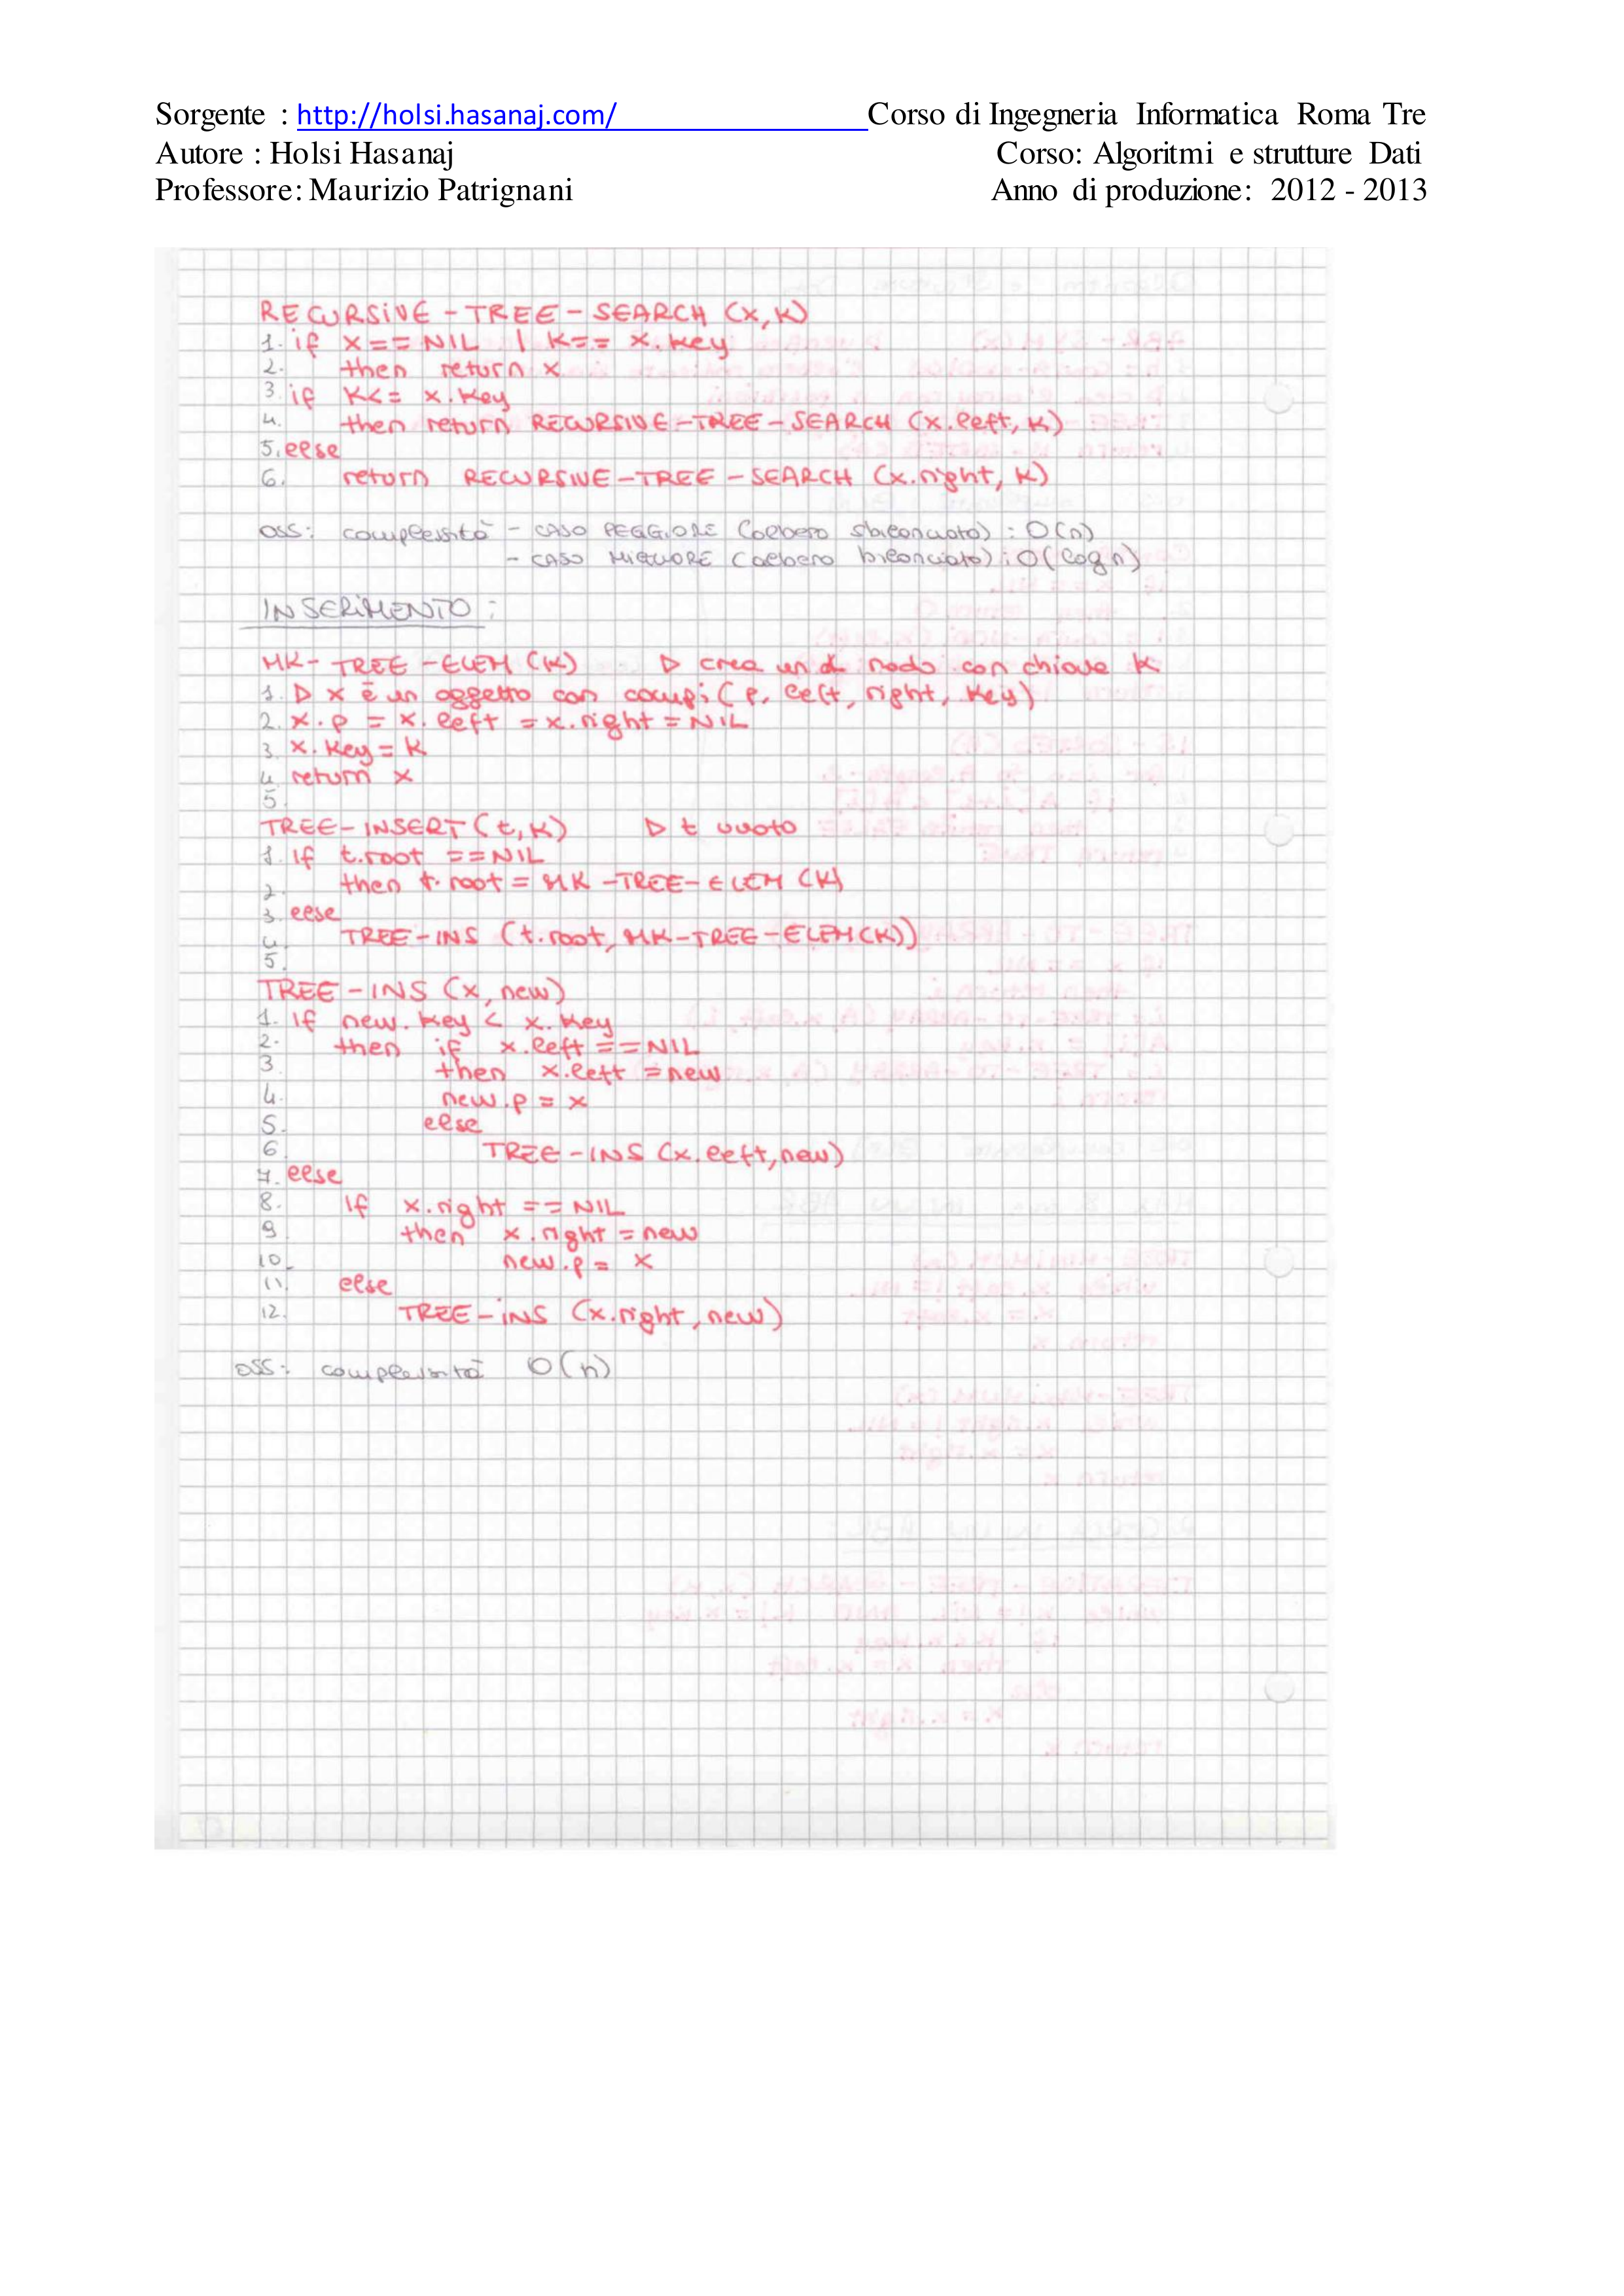 Sorgente : http://holsi.hasanaj.com/ Corso di Ingegneria Informatica Roma Tre
Autore : Holsi Hasanaj Corso: Algoritmi e strutture Dati
Professore: Maurizio Patrignani Anno di produzione: 2012 - 2013
RECURSIVE-TREE-SEARCH (x,k)
1. if x==NIL | k== x.key
2. then return x
3. if k<= x.key
4. then return RECURSIVE-TREE-SEARCH (x.left, k)
5. else
6. return RECURSIVE-TREE-SEARCH (x.right, k)
oss: complessità - CASO PEGGIORE (albero sbilanciato) : O(n)
- CASO MIGLIORE (albero bilanciato) : O(log n)
INSERIMENTO:
MK-TREE-ELEM (k) ▷ crea un nodo con chiave k
1. ▷ x è un oggetto con campi (p, left, right, key)
2. x.p = x.left = x.right = NIL
3. x.key = k
4. return x
5.
TREE-INSERT (t,k) ▷ t vuoto
1. if t.root ==NIL
2. then t.root = MK-TREE-ELEM (k)
3. else
4. TREE-INS (t.root, MK-TREE-ELEM(k))
5.
TREE-INS (x, new)
1. if new.key < x.key
2. then if x.left ==NIL
3. then x.left = new
4. new.p = x
5. else
6. TREE-INS (x.left, new)
7. else
8. if x.right == NIL
9. then x.right = new
10. new.p = x
11. else
12. TREE-INS (x.right, new)
oss: complessità O(n)